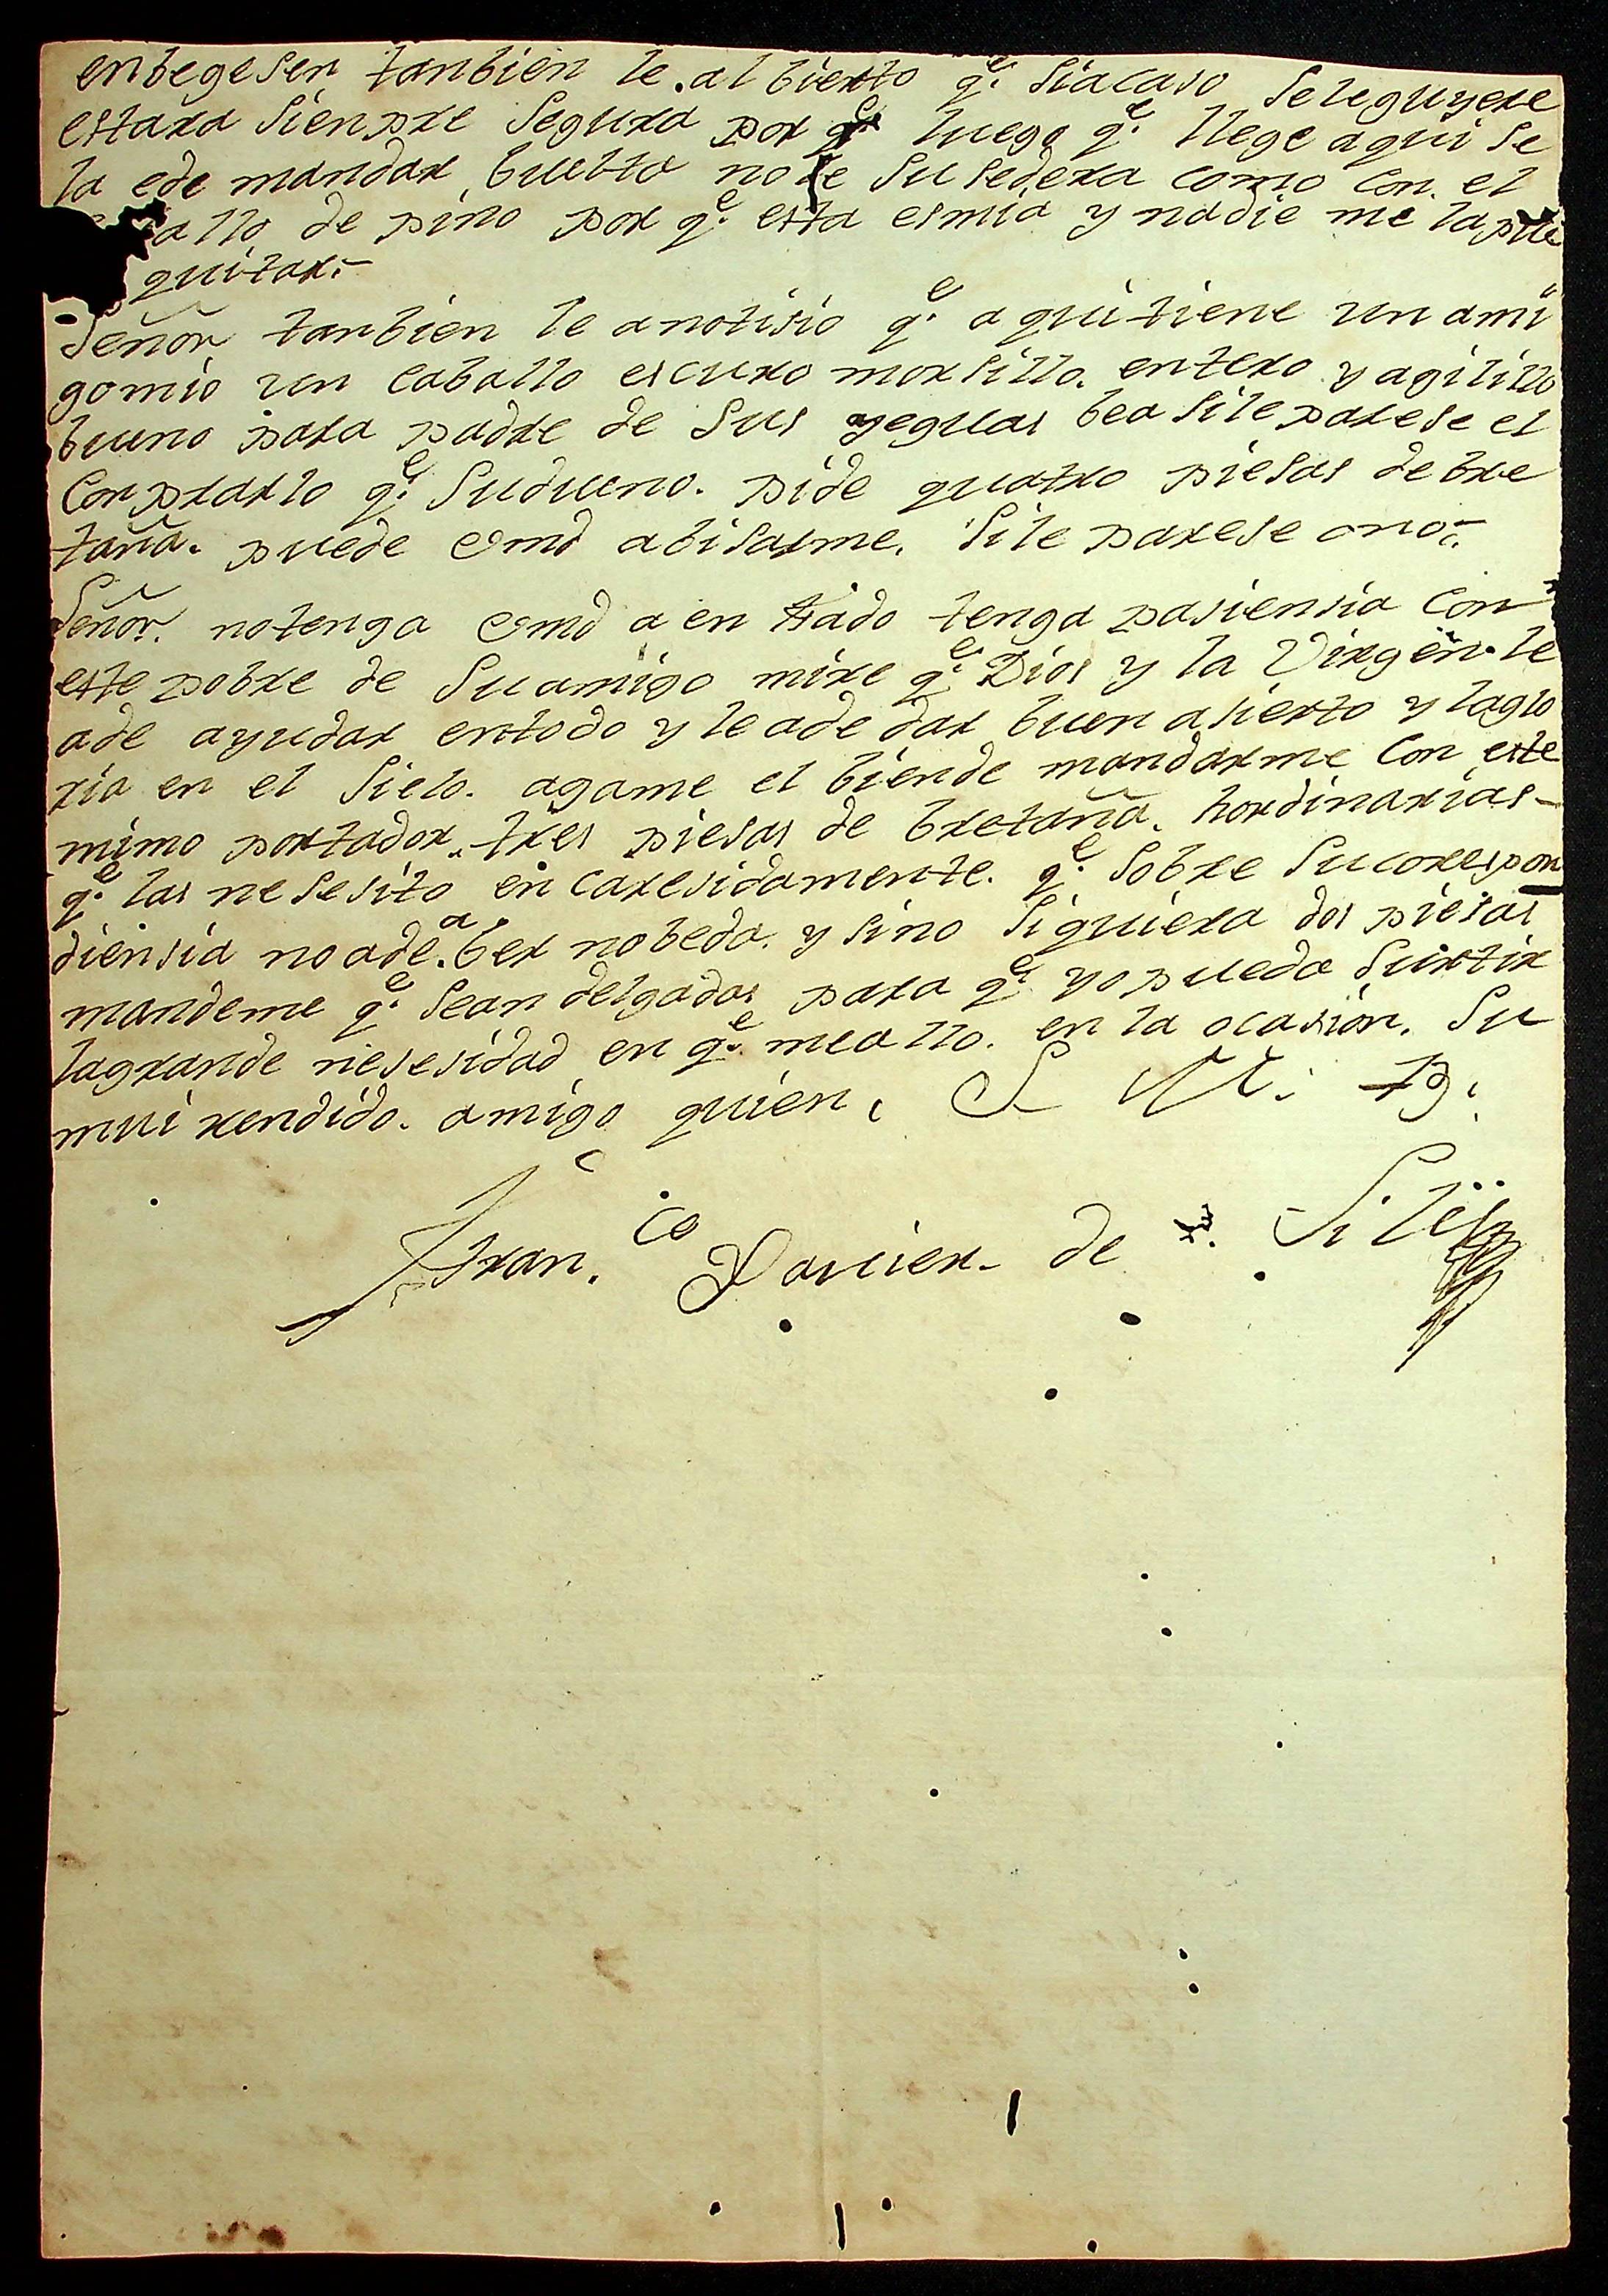 enbegesen tanbien le.al bierto q.e siacaso seleguyere
estara sienpre segura por q.e luego q.e llege aqui se
la ede mandar buelta no le susedera como con. el
allo de pino por q.e esta esmia y nadie me la pue
quitar.-
Señor tanbien le anotisio q.e aqui tiene un ami
gomio un caballo escuro morsillo. entero y agilillo
bueno para padre de sus yeguas bea sile parese el
conprarlo q.e sudueno. pide quatro piesas de bre
taña. puede vmd abisarme. sile parese ono.-
Señor. notenga vmd a en fado tenga pasiensia con
este pobre de suamigo mire q.e Dios y la Virgen. le
ade ayudar entodo y le ade dar buen asierto y laglo
ria en el sielo. agame el biende mandarme con este
mimo portador. tres piesas de bretaña. hordinarias-
q.e las nesesito en caresidamente. q.e sobre sucorespon
diensia no ade.a ber nobeda. y sino siquiera dos piesas
mandeme q.e sean delgadas para q.e yo pueda surtir
lagrande nesesidad en q.e meallo. en la ocasion. Su
mui rendido. amigo quien, S M. B.
Fran.co Xavier de